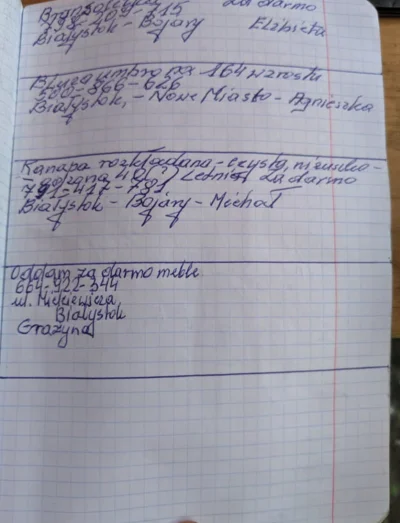 za darmo
Białystok - Bojary Elżbieta
Bluza umpro na 164 wzrostu
500-866-626
Białystok, - Nowe Miasto - Agnieszka
Kanapa rozkładana - czysta, nieuszko-
za darmo
791-417-781
Białystok - Bojary - Michał
Oddam za darmo meble
664-922-344
ul. Mickiewicza,
Białystok
Grażyna